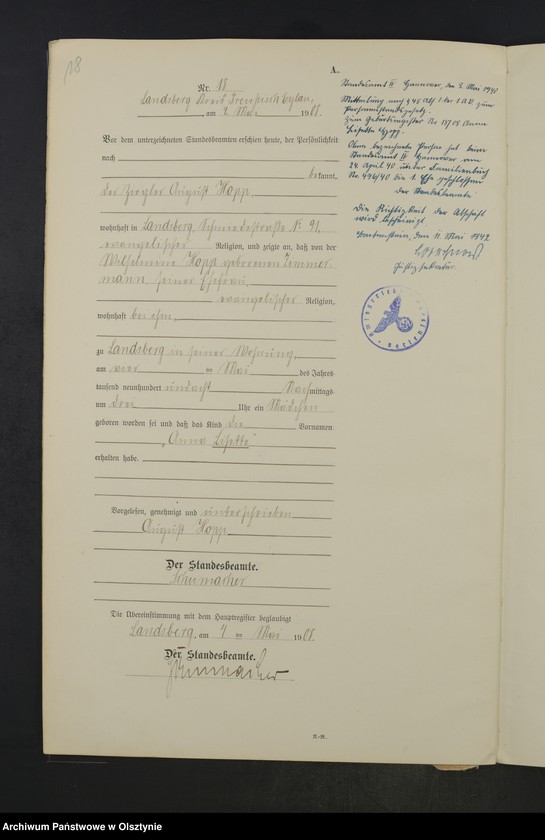 18
A.
Nr. 18
Landsberg Kreis Preußisch Eylau,
am 7 Mai 1908.
Vor dem unterzeichneten Standesbeamten erschien heute, der Persönlichkeit
nach
bekannt,
der Ziegler August Hopp
wohnhaft in Landsberg Schmiedestraße No 91,
evangelischer Religion, und zeigte an, daß von der
Wilhelmine Hopp geborenen Zimmer-
mann, seiner Ehefrau,
evangelischer Religion,
wohnhaft bei ihm,
zu Landsberg in seiner Wohnung,
am vier ten Mai des Jahres
tausend neunhundert und acht Nachmittags
um drei Uhr ein Mädchen
geboren worden sei und daß das Kind die Vornamen
„Anna Lisette"
erhalten habe.
Vorgelesen, genehmigt und unterschrieben
August Hopp
Der Standesbeamte.
Schumacher
Die Übereinstimmung mit dem Hauptregister beglaubigt
Landsberg, am 7 ten Mai 1908.
Der Standesbeamte.
Schumacher
Standesamt II Hannover, den 2. Mai 1940
Mitteilung nach § 45 Abs 1 der 1. A.V. zum
Personenstandsgesetz.
zum Geburtenregister No 18/08 Anna
Lisette Hopp.
Oben bezeichnete Person hat beim
Standesamt II Hannover am
24. April 40 unter Familienbuch
No. 496/40 die 1. Ehe geschlossen
der Standesbeamte
Die Richtigkeit der Abschrift
wird bescheinigt.
Bartenstein, den 11. Mai 1942
Justizsekretär.
Amtsgericht Bartenstein
Archiwum Państwowe w Olsztynie